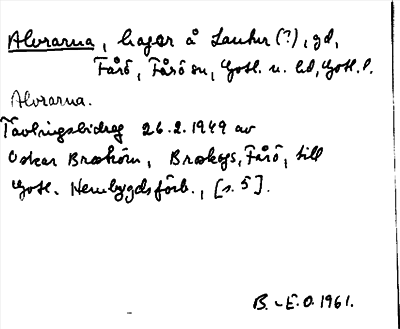 Alvrarna, hagar å Lauhur (?), gd,
Fårö, Fårö sn, Gotl. n. hd, Gotl. l.
Alvrarna.
Tävlingsbidrag 26.2.1949 av
Oskar Broström, Broskogs, Fårö, till
Gotl. Hembygdsförb., [s. 5].
B. -E. O. 1961.